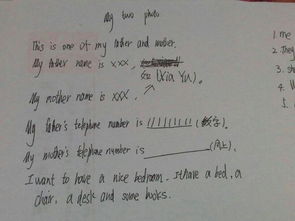 My two photo
This is one of my father and mother.
My father name is XXX,
(Xia Yu)。
My mother name is XXX,
My father's telephone number is 11111111 (数字)。
My mother's telephone number is ________ (同上)
I want to have a nice bedroom. It have a bed, a
chair, a desk and some books.
1. me
2. They
3. sh
4.
5.